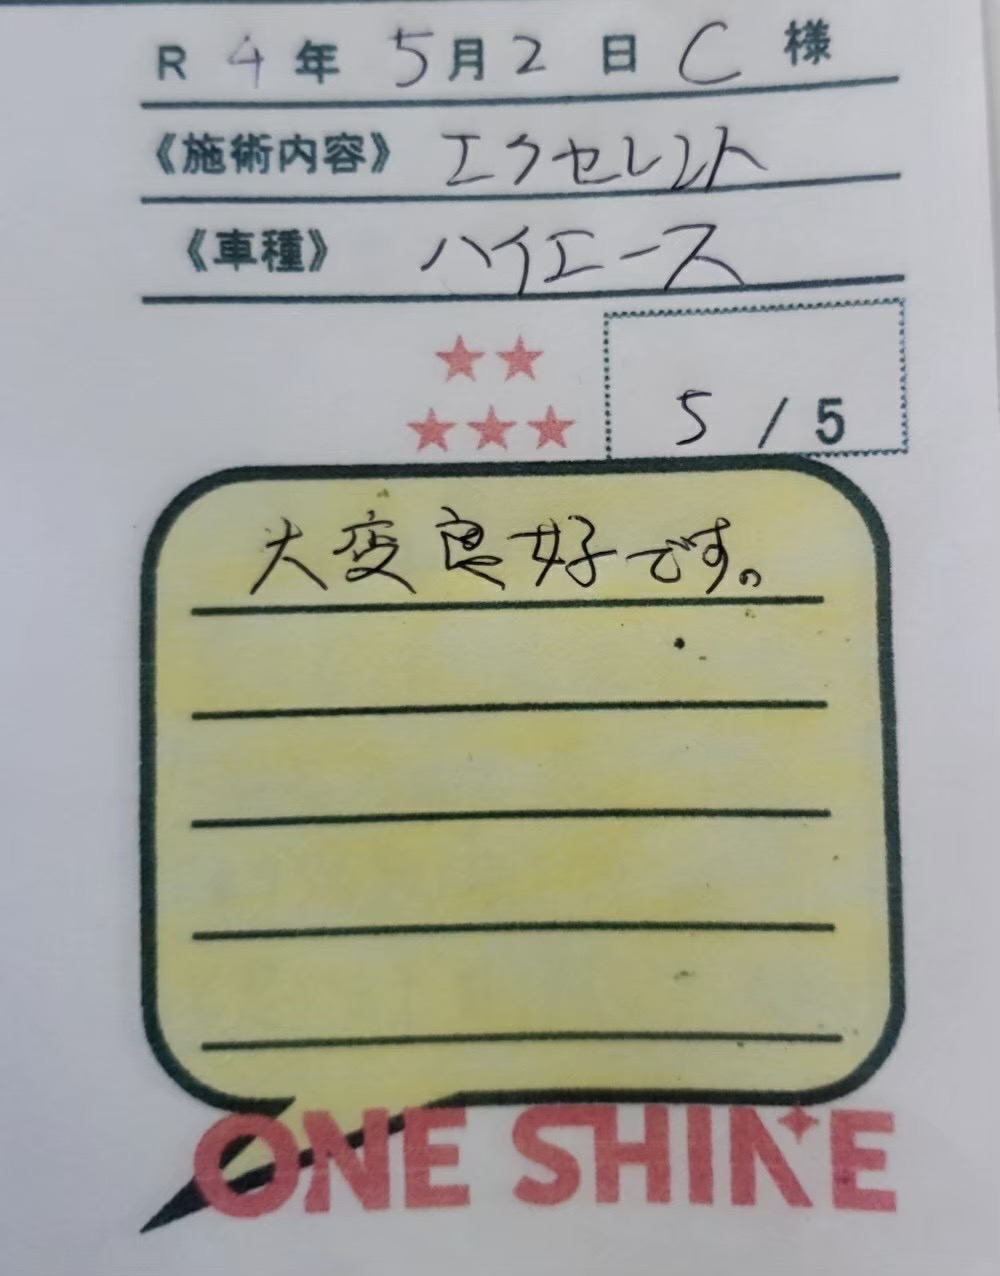 R 4年 5月2日 C様
《施術内容》 エクセレント
《車種》 ハイエース
5 / 5
大変良好です。
ONE SHINE